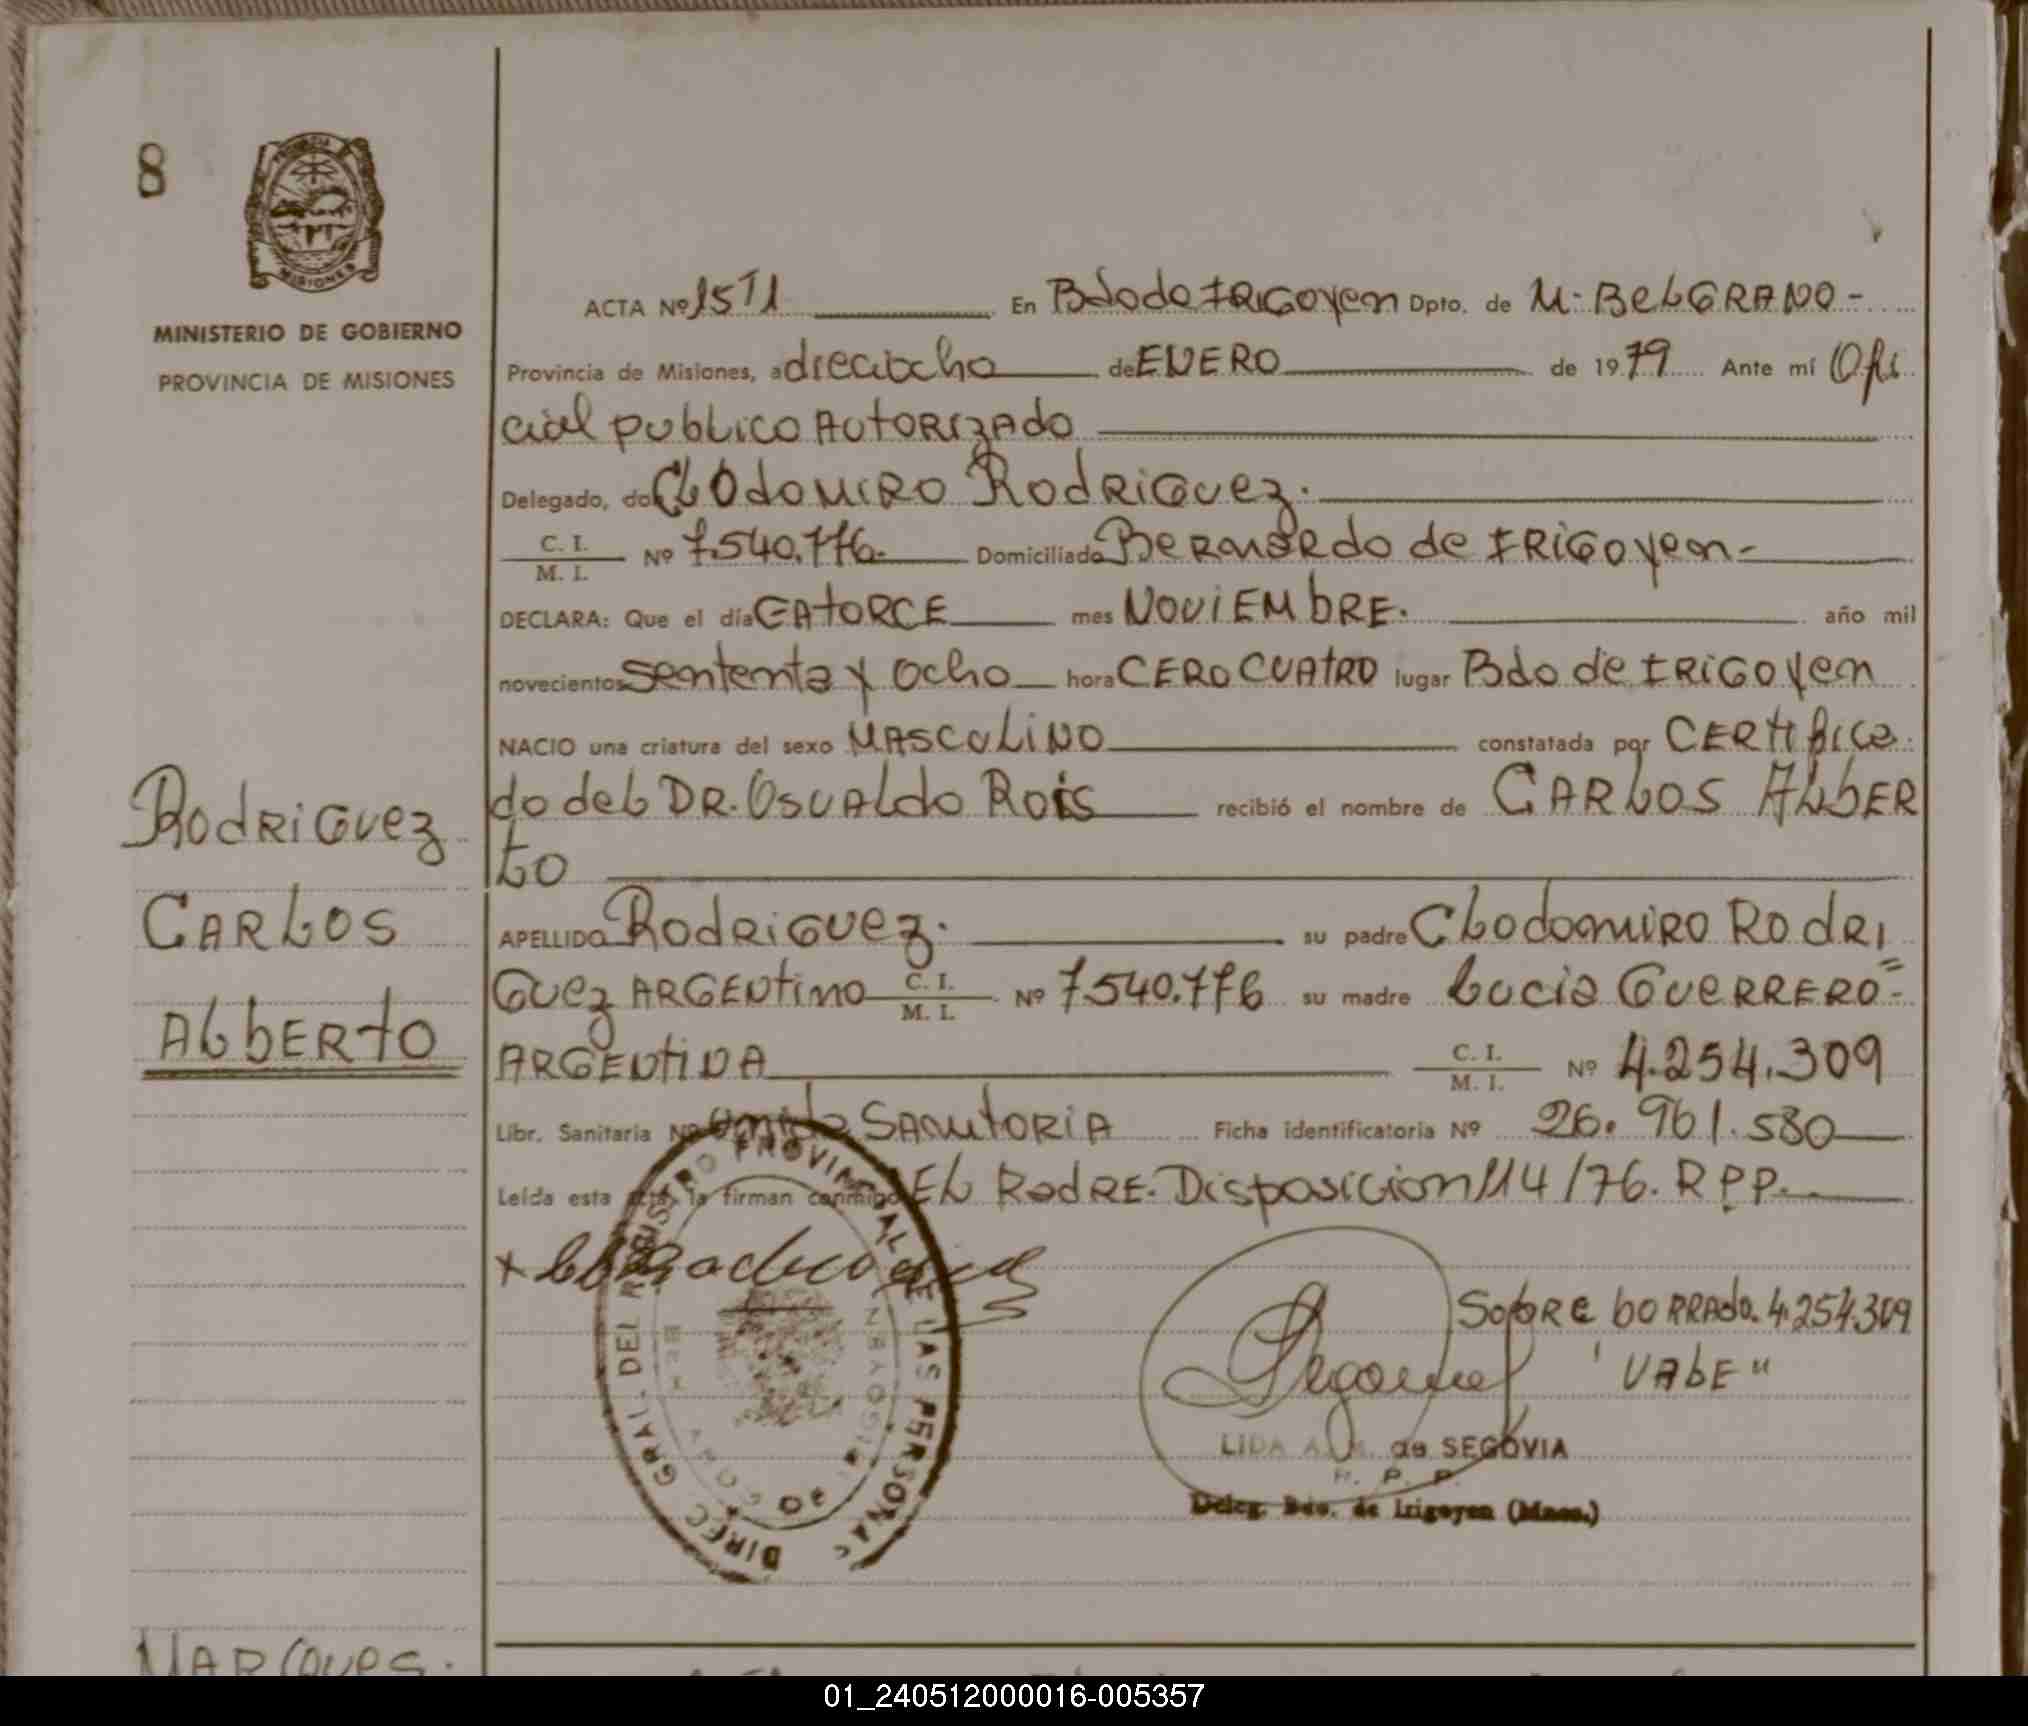 8
MINISTERIO DE GOBIERNO
PROVINCIA DE MISIONES
ACTA Nº 15 T1 En Bdo de IRIGOyen Dpto. de M. BELGRANO -
Provincia de Misiones, a dieciocho de ENERO de 1979 Ante mí Ofi
cial publico AUTORIZADO
Delegado, do CLODOMIRO RODRIGUEZ.
C. I.
M. I. Nº 7.540.776. Domiciliado Bernardo de IRIGOyen -
DECLARA: Que el día CATORCE mes NOVIEMBRE. año mil
novecientos sententa y ocho hora CERO CUATRO lugar Bdo de IRIGOyen
NACIO una criatura del sexo MASCULINO constatada por CERtifica
do del DR. OSVALDO Rois recibió el nombre de CARLOS ALBER
to
RODRIGUEZ
CARLOS
ALBERTO
APELLIDO RODRIGUEZ. su padre Clodomiro RODRI
GUEZ ARGENtino C. I. M. I. Nº 7.540.776 su madre Lucia GUERRERO =
ARGENTINA C. I. M. I. Nº 4.254.309
Libr. Sanitaria Nº SANITORIA Ficha identificatoria Nº 26.961.580
Leída esta acta, la firman conmigo EL PADRE. Disposicion 114/76. R P P.
DIREC. GRAL. DEL REGISTRO PROVINCIAL DE LAS PERSONAS
SobRe boRRAdo. 4.254.309
"VALE"
LIDA A. M. de SEGOVIA
R. P. P.
Deleg. Bdo. de Irigoyen (Mnes.)
MARQUES.
01_240512000016-005357